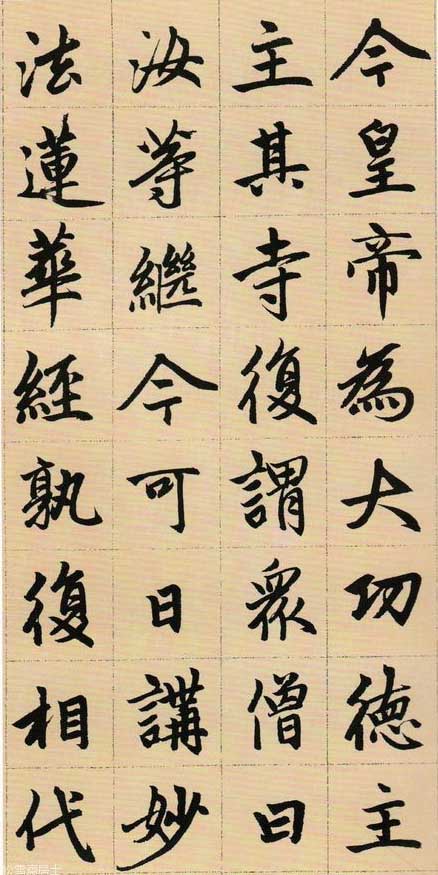 今皇帝為大功德主
主其寺復謂衆僧曰
汝等繼今可日講妙
法蓮華經孰復相代